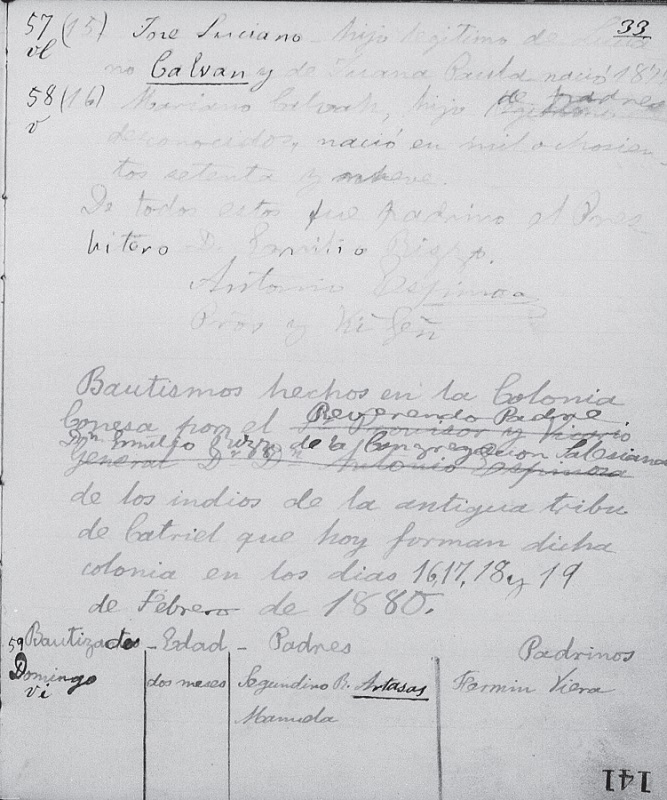 33
57 (15) Jose Luciano - hijo legitimo de Lucia
vl no Galvan y de Juana Paula nació 187
58 (16) Mariano Galvan, hijo de padres
v desconocidos, nació en mil ochosien
tos setenta y nueve.
De todos estos fue padrino el Pres
bitero D. Emilio Rizzo.
Antonio Espinosa
Pros y Vi Gen
Bautismos hechos en la Colonia
Conesa por el Reverendo Padre
Provisor y Vicario
Dn Emilio Rizzo de la Congregacion Salesiana
General Dr Dn Antonio Espinosa
de los indios de la antigua tribu
de Catriel que hoy forman dicha
colonia en los dias 16, 17, 18 y 19
de Febrero de 1880.
Bautizados - Edad - Padres Padrinos
59 Domingo dos meses Segundino B. Artasas Fermin Viera
vi Manuela
141